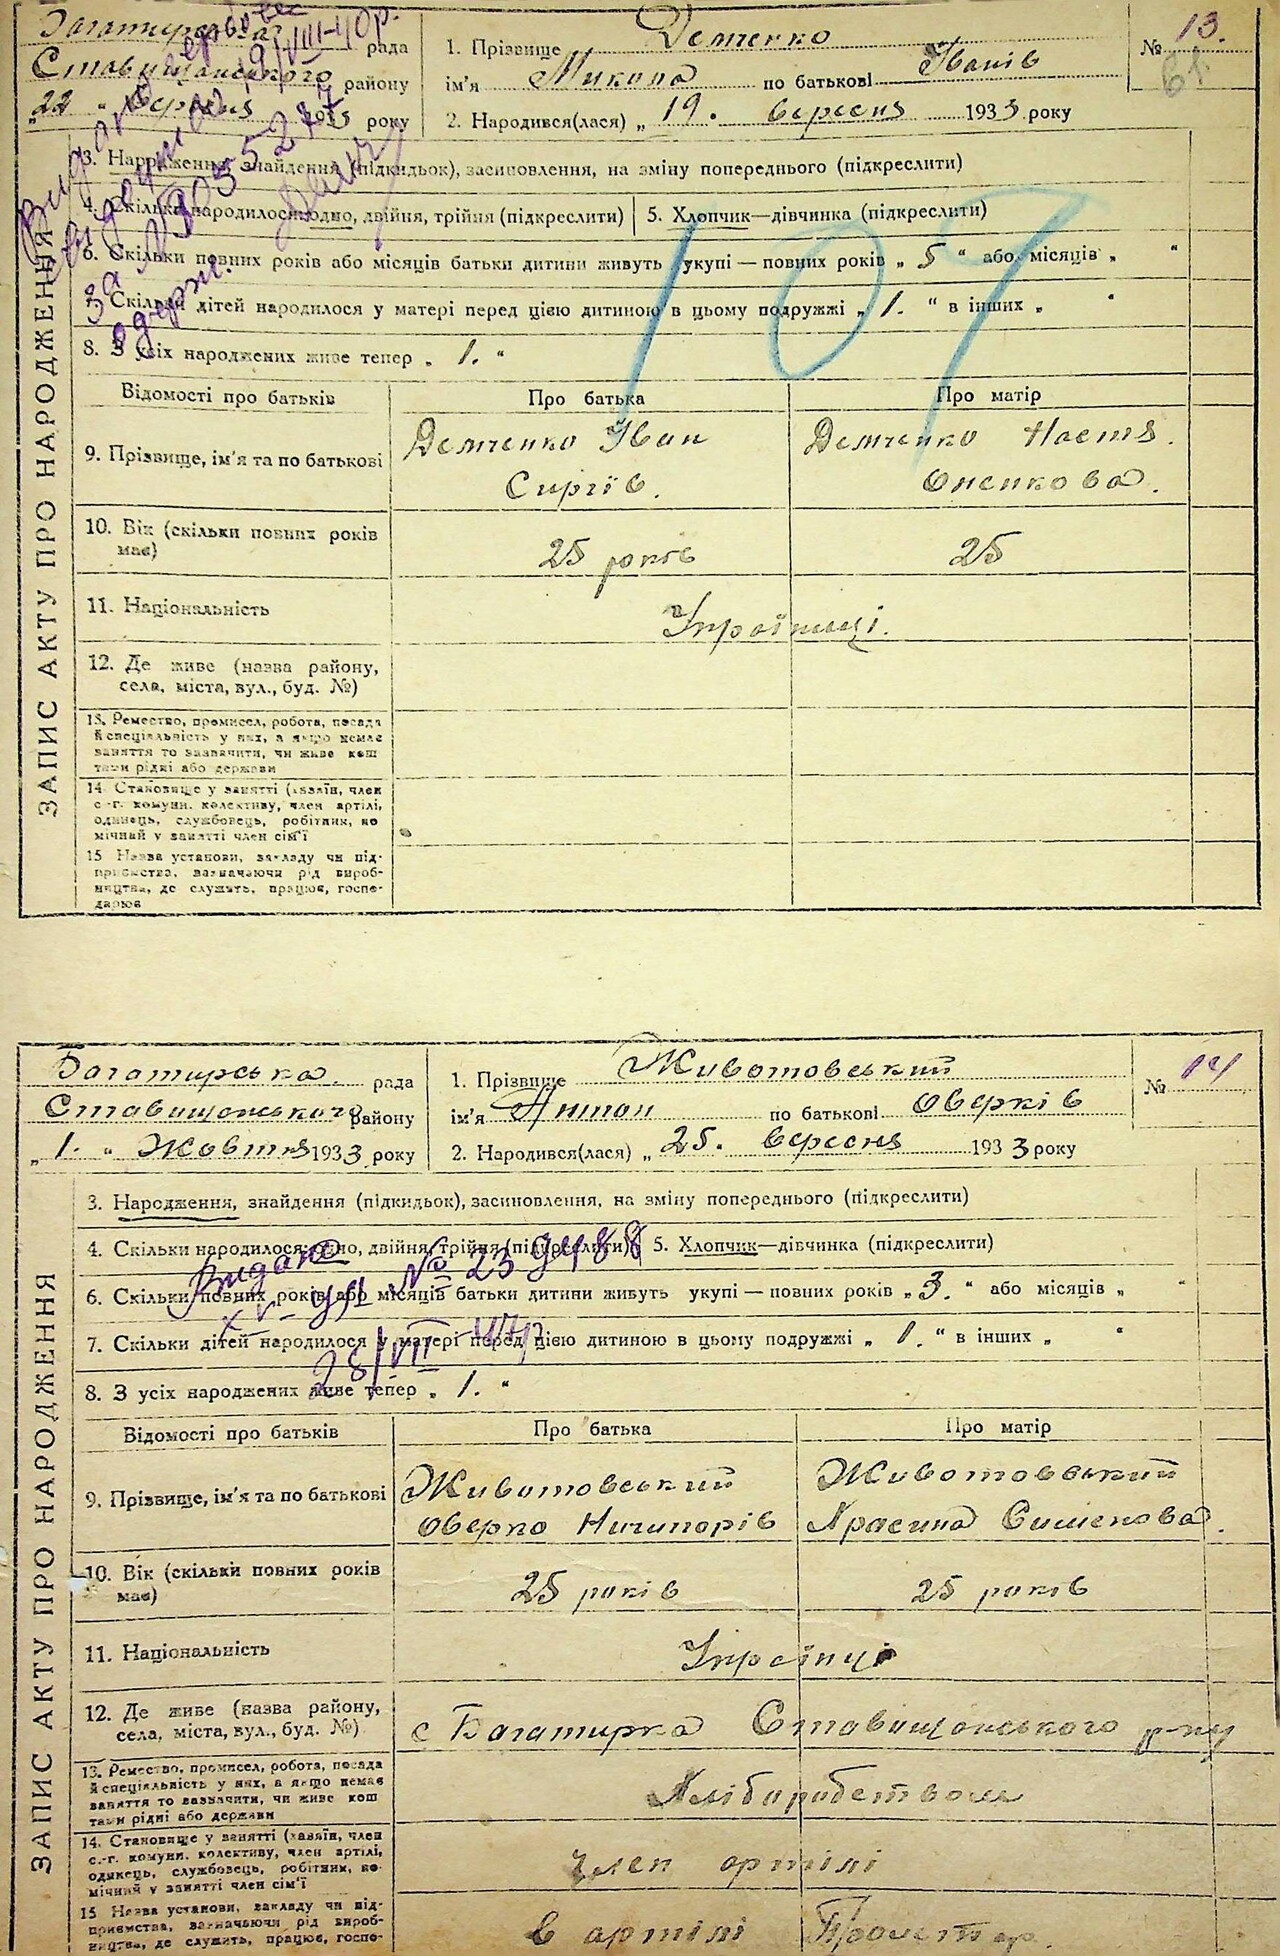 Багатирська рада
Ставищанського району
„22 " вересня 1933 року
1. Прізвище Демченко
ім'я Микола по батькові Іванів
2. Народився(лася) „ 19. вересня 1933 року
№ 13.
61
Видано
19/VIII-40р.
За №
одерж.
3. Народження, знайдення (підкидьок), засиновлення, на зміну попереднього (підкреслити)
4. Скільки народилося: одно, двійня, трійня (підкреслити)
5. Хлопчик—дівчинка (підкреслити)
6. Скільки повних років або місяців батьки дитини живуть укупі — повних років „ 5 " або місяців „ "
7. Скільки дітей народилося у матері перед цією дитиною в цьому подружжі „ 1. " в інших „ "
8. З усіх народжених живе тепер „ 1. "
107
ЗАПИС АКТУ ПРО НАРОДЖЕННЯ
Відомості про батьків
Про батька
Про матір
9. Прізвище, ім'я та по батькові
Демченко Іван
Сиргіїв.
Демченко Настя.
10. Вік (скільки повних років має)
25 років
25
11. Національність
Українці.
12. Де живе (назва району,
села, міста, вул., буд. №)
13. Ремество, промисел, робота, посада
й спеціяльність у них, а якщо немає
заняття то зазначити, чи живе кош
тами рідні або держави
14. Становище у занятті (хазяїн, член
с.-г. комуни, колективу, член артілі,
одинець, службовець, робітник, по
мічний у занятті член сім'ї
15 Назва установи, закладу чи під-
приємства, зазначаючи рід вироб-
ництва, де служить, працює, госпо-
дарює
Багатирська. рада
Ставищанського району
„ 1. " Жовтня 1933 року
1. Прізвище Животовський
ім'я Антон по батькові Оверків
2. Народився(лася) „ 25. вересня 1933 року
№ 14
3. Народження, знайдення (підкидьок), засиновлення, на зміну попереднього (підкреслити)
4. Скільки народилося: одно, двійня, трійня (підкреслити)
5. Хлопчик—дівчинка (підкреслити)
Видано
№ 239488
6. Скільки повних років або місяців батьки дитини живуть укупі — повних років „ 3. " або місяців „ "
7. Скільки дітей народилося у матері перед цією дитиною в цьому подружжі „ 1. " в інших „ "
28/VII
8. З усіх народжених живе тепер „ 1. "
ЗАПИС АКТУ ПРО НАРОДЖЕННЯ
Відомості про батьків
Про батька
Про матір
9. Прізвище, ім'я та по батькові
Животовський
Оверко Ничипорів
Животовський
10. Вік (скільки повних років
має)
25 років
25 років
11. Національність
Українці
12. Де живе (назва району,
села, міста, вул., буд. №)
с Багатирка Ставищанського р-ну
13. Ремество, промисел, робота, посада
й спеціяльність у них, а якщо немає
заняття то зазначити, чи живе кош
тами рідні або держави
Хліборобством
14. Становище у занятті (хазяїн, член
с.-г. комуни, колективу, член артілі,
одинець, службовець, робітник, по-
мічний у занятті член сім'ї
член артілі
15 Назва установи, закладу чи під-
приємства, зазначаючи рід вироб-
ництва, де служить, працює, госпо-
в артілі